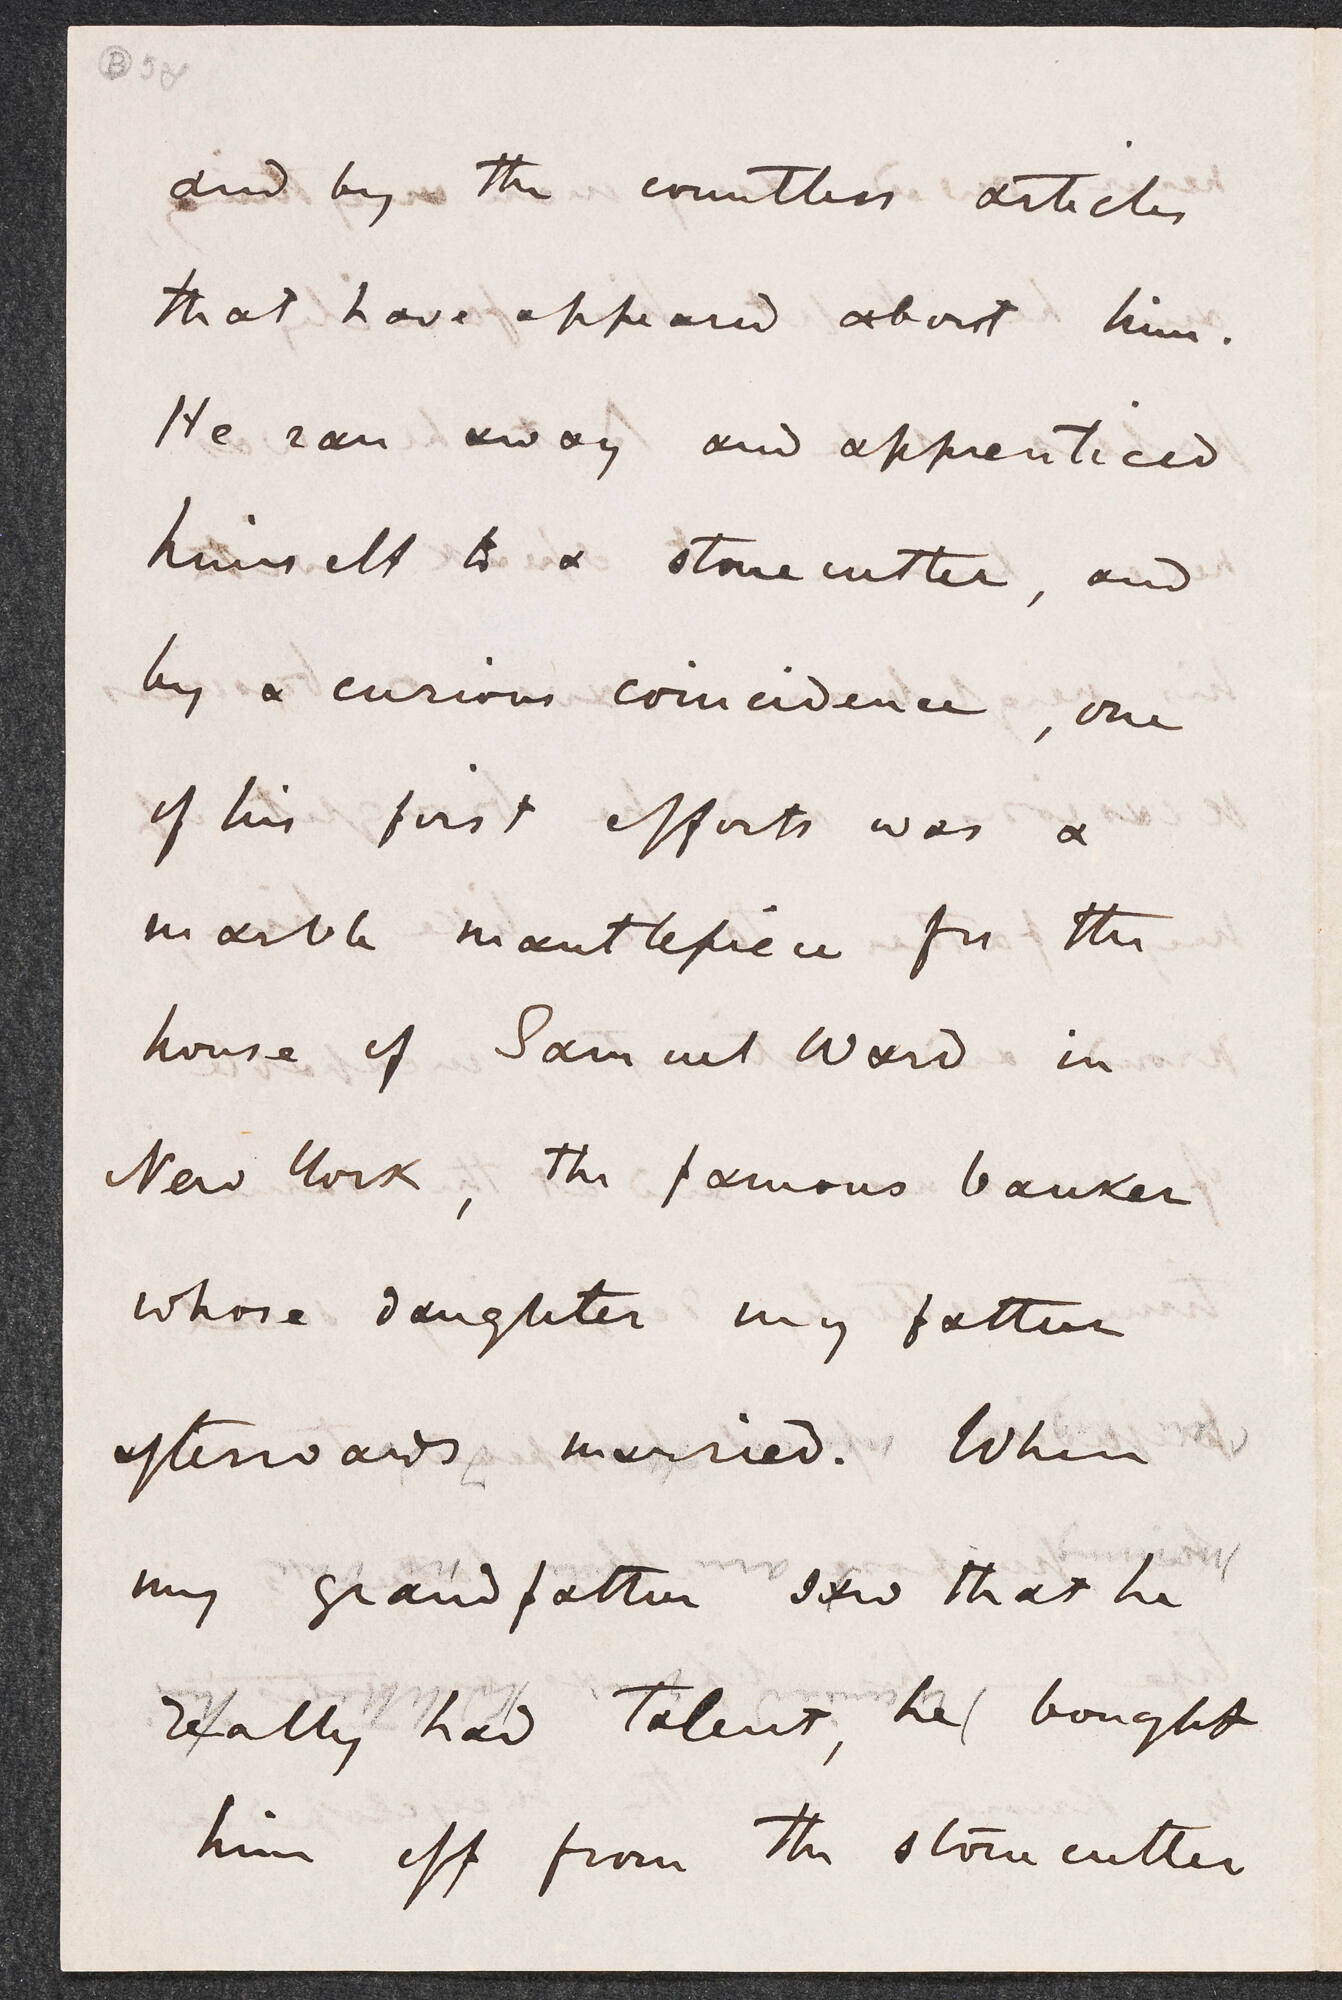 and by the countless articles
that have appeared about him.
He ran away and apprenticed
himself to a stonecutter, and
by a curious coincidence, one
of his first efforts was a
marble mantlepiece for the
house of Samuel Ward in
New York, the famous banker
whose daughter my father
afterwards married. When
my grandfather saw that he
really had talent, he bought
him off from the stonecutter